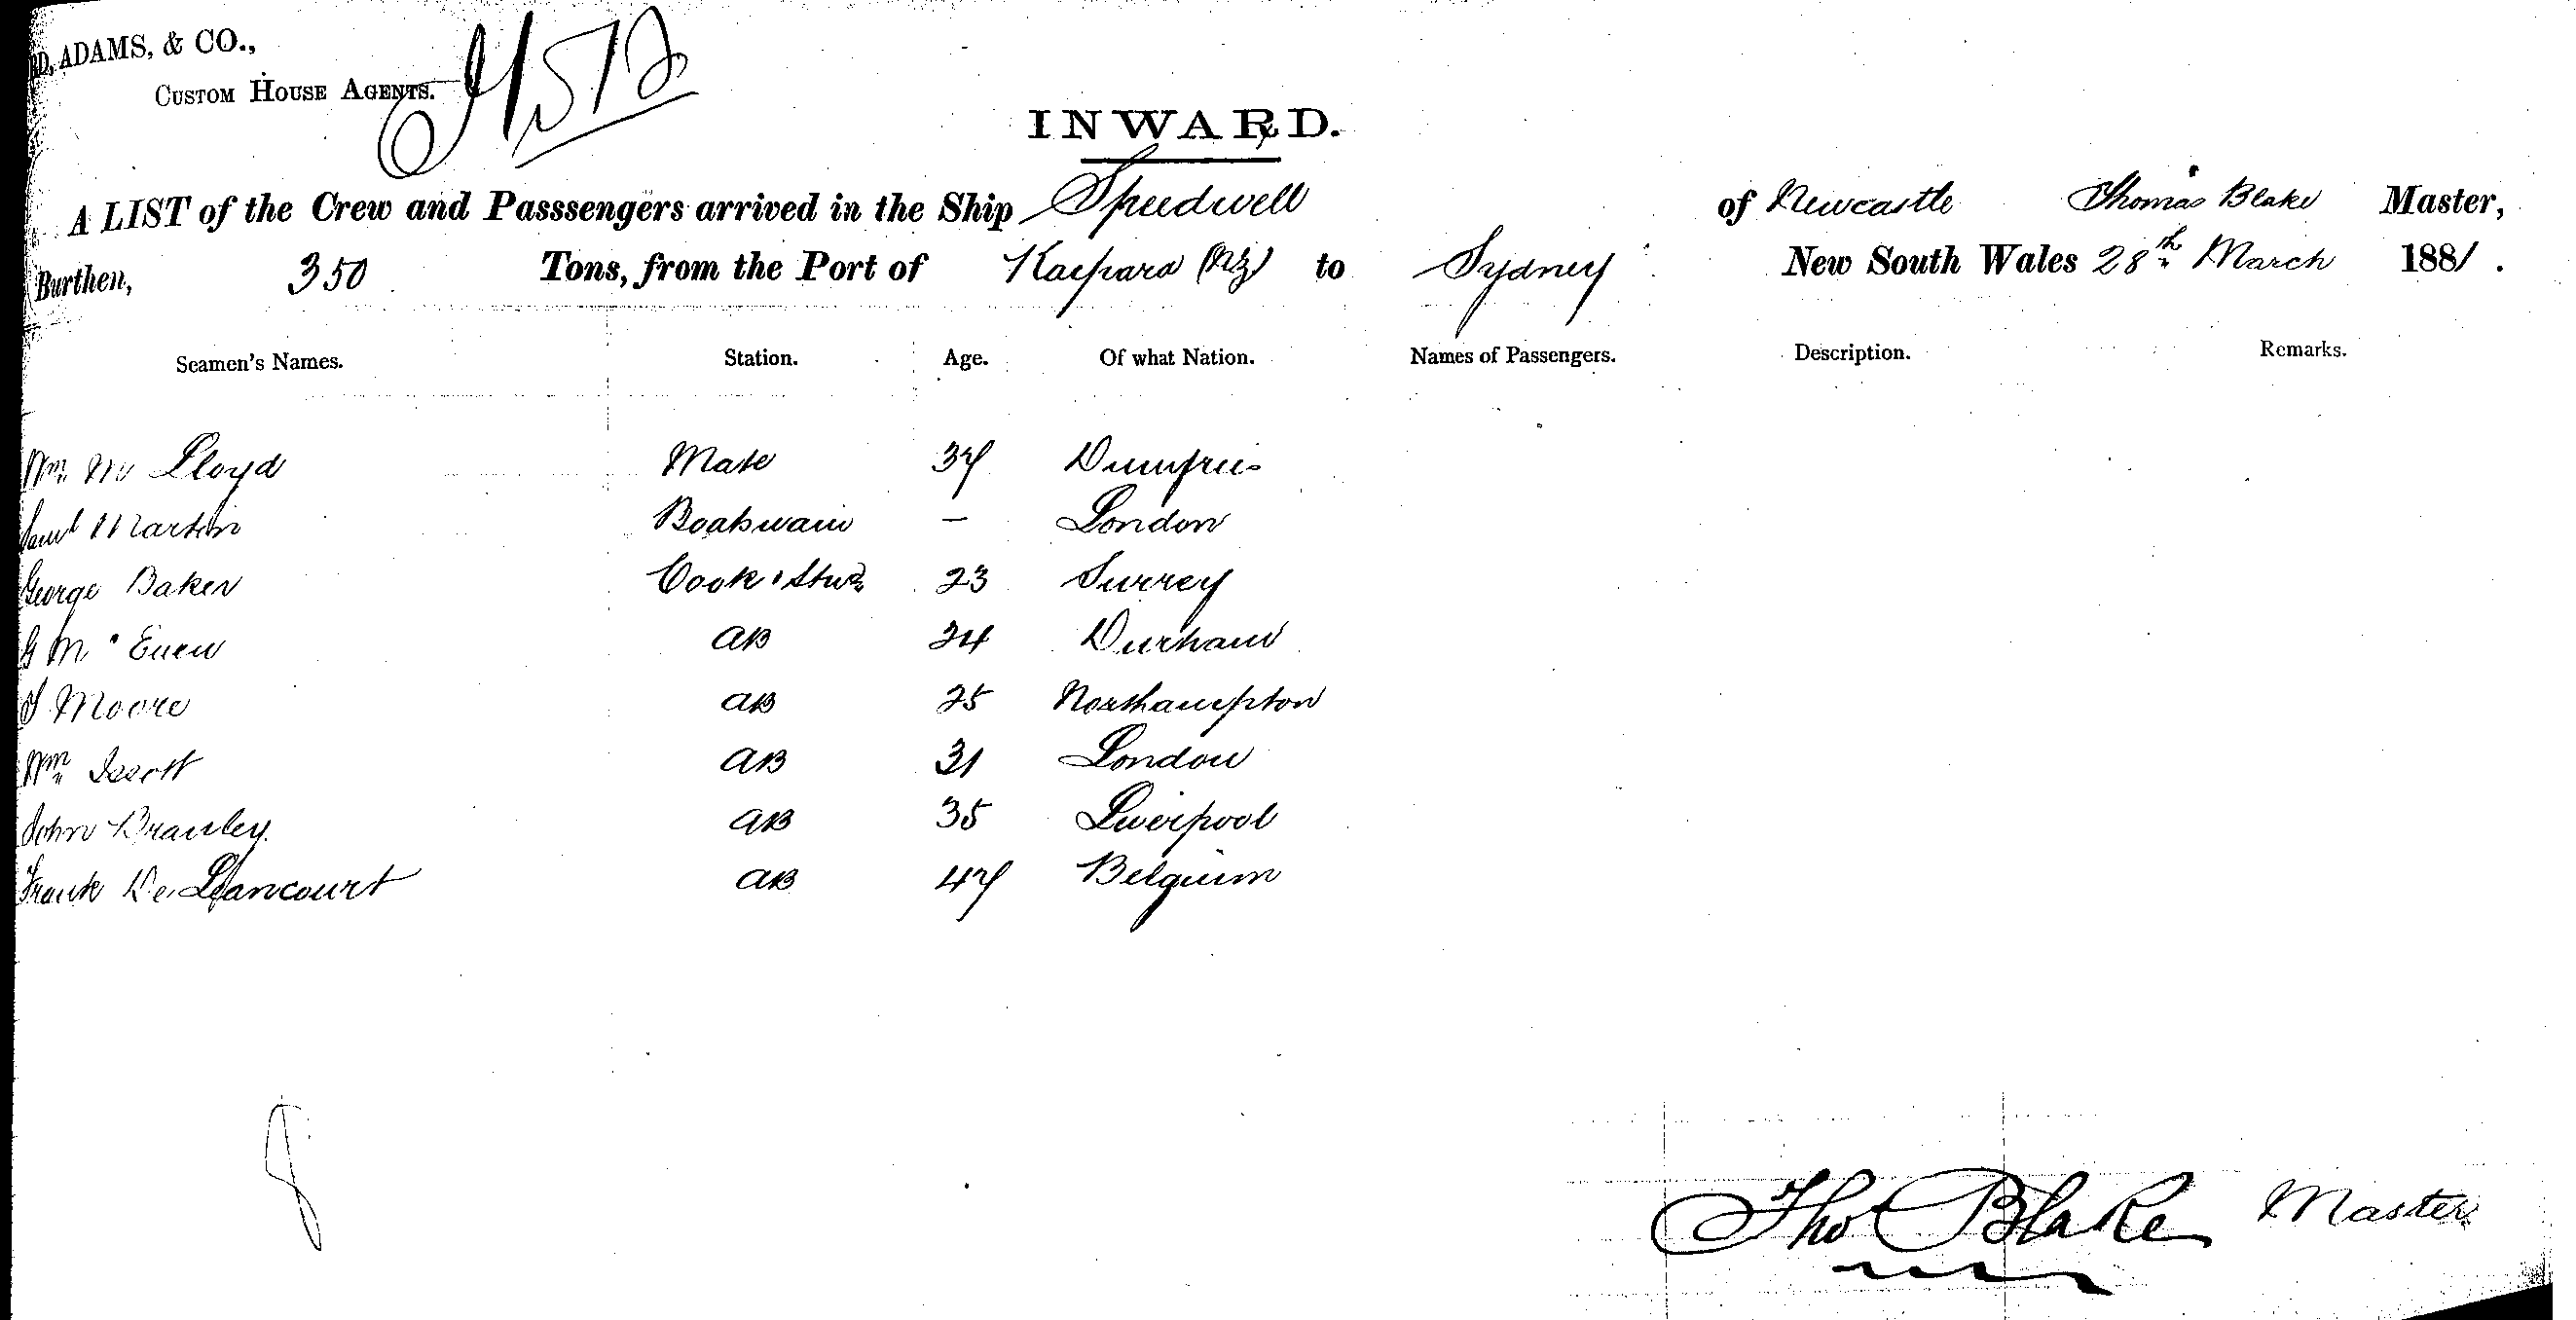 ADAMS, & CO.,
CUSTOM HOUSE AGENTS.
INWARD.
A LIST of the Crew and Passsengers arrived in the Ship Speedwell of Newcastle Thomas Blake Master,
Burthen, 350 Tons, from the Port of Kaipara (NZ) to Sydney New South Wales 28th March 1881.
Seamen's Names. Station. Age. Of what Nation. Names of Passengers. Description. Remarks.
Wm Lloyd Mate 37 Dumfries
Saml Martin Boatswain – London
George Baker Cook & Stwd 23 Surrey
G Mc Euen AB 24 Durham
Moore AB 25 Northampton
Wm AB 31 London
John AB 35 Liverpool
Frank De AB 47 Belgium
8
Tho Blake Master